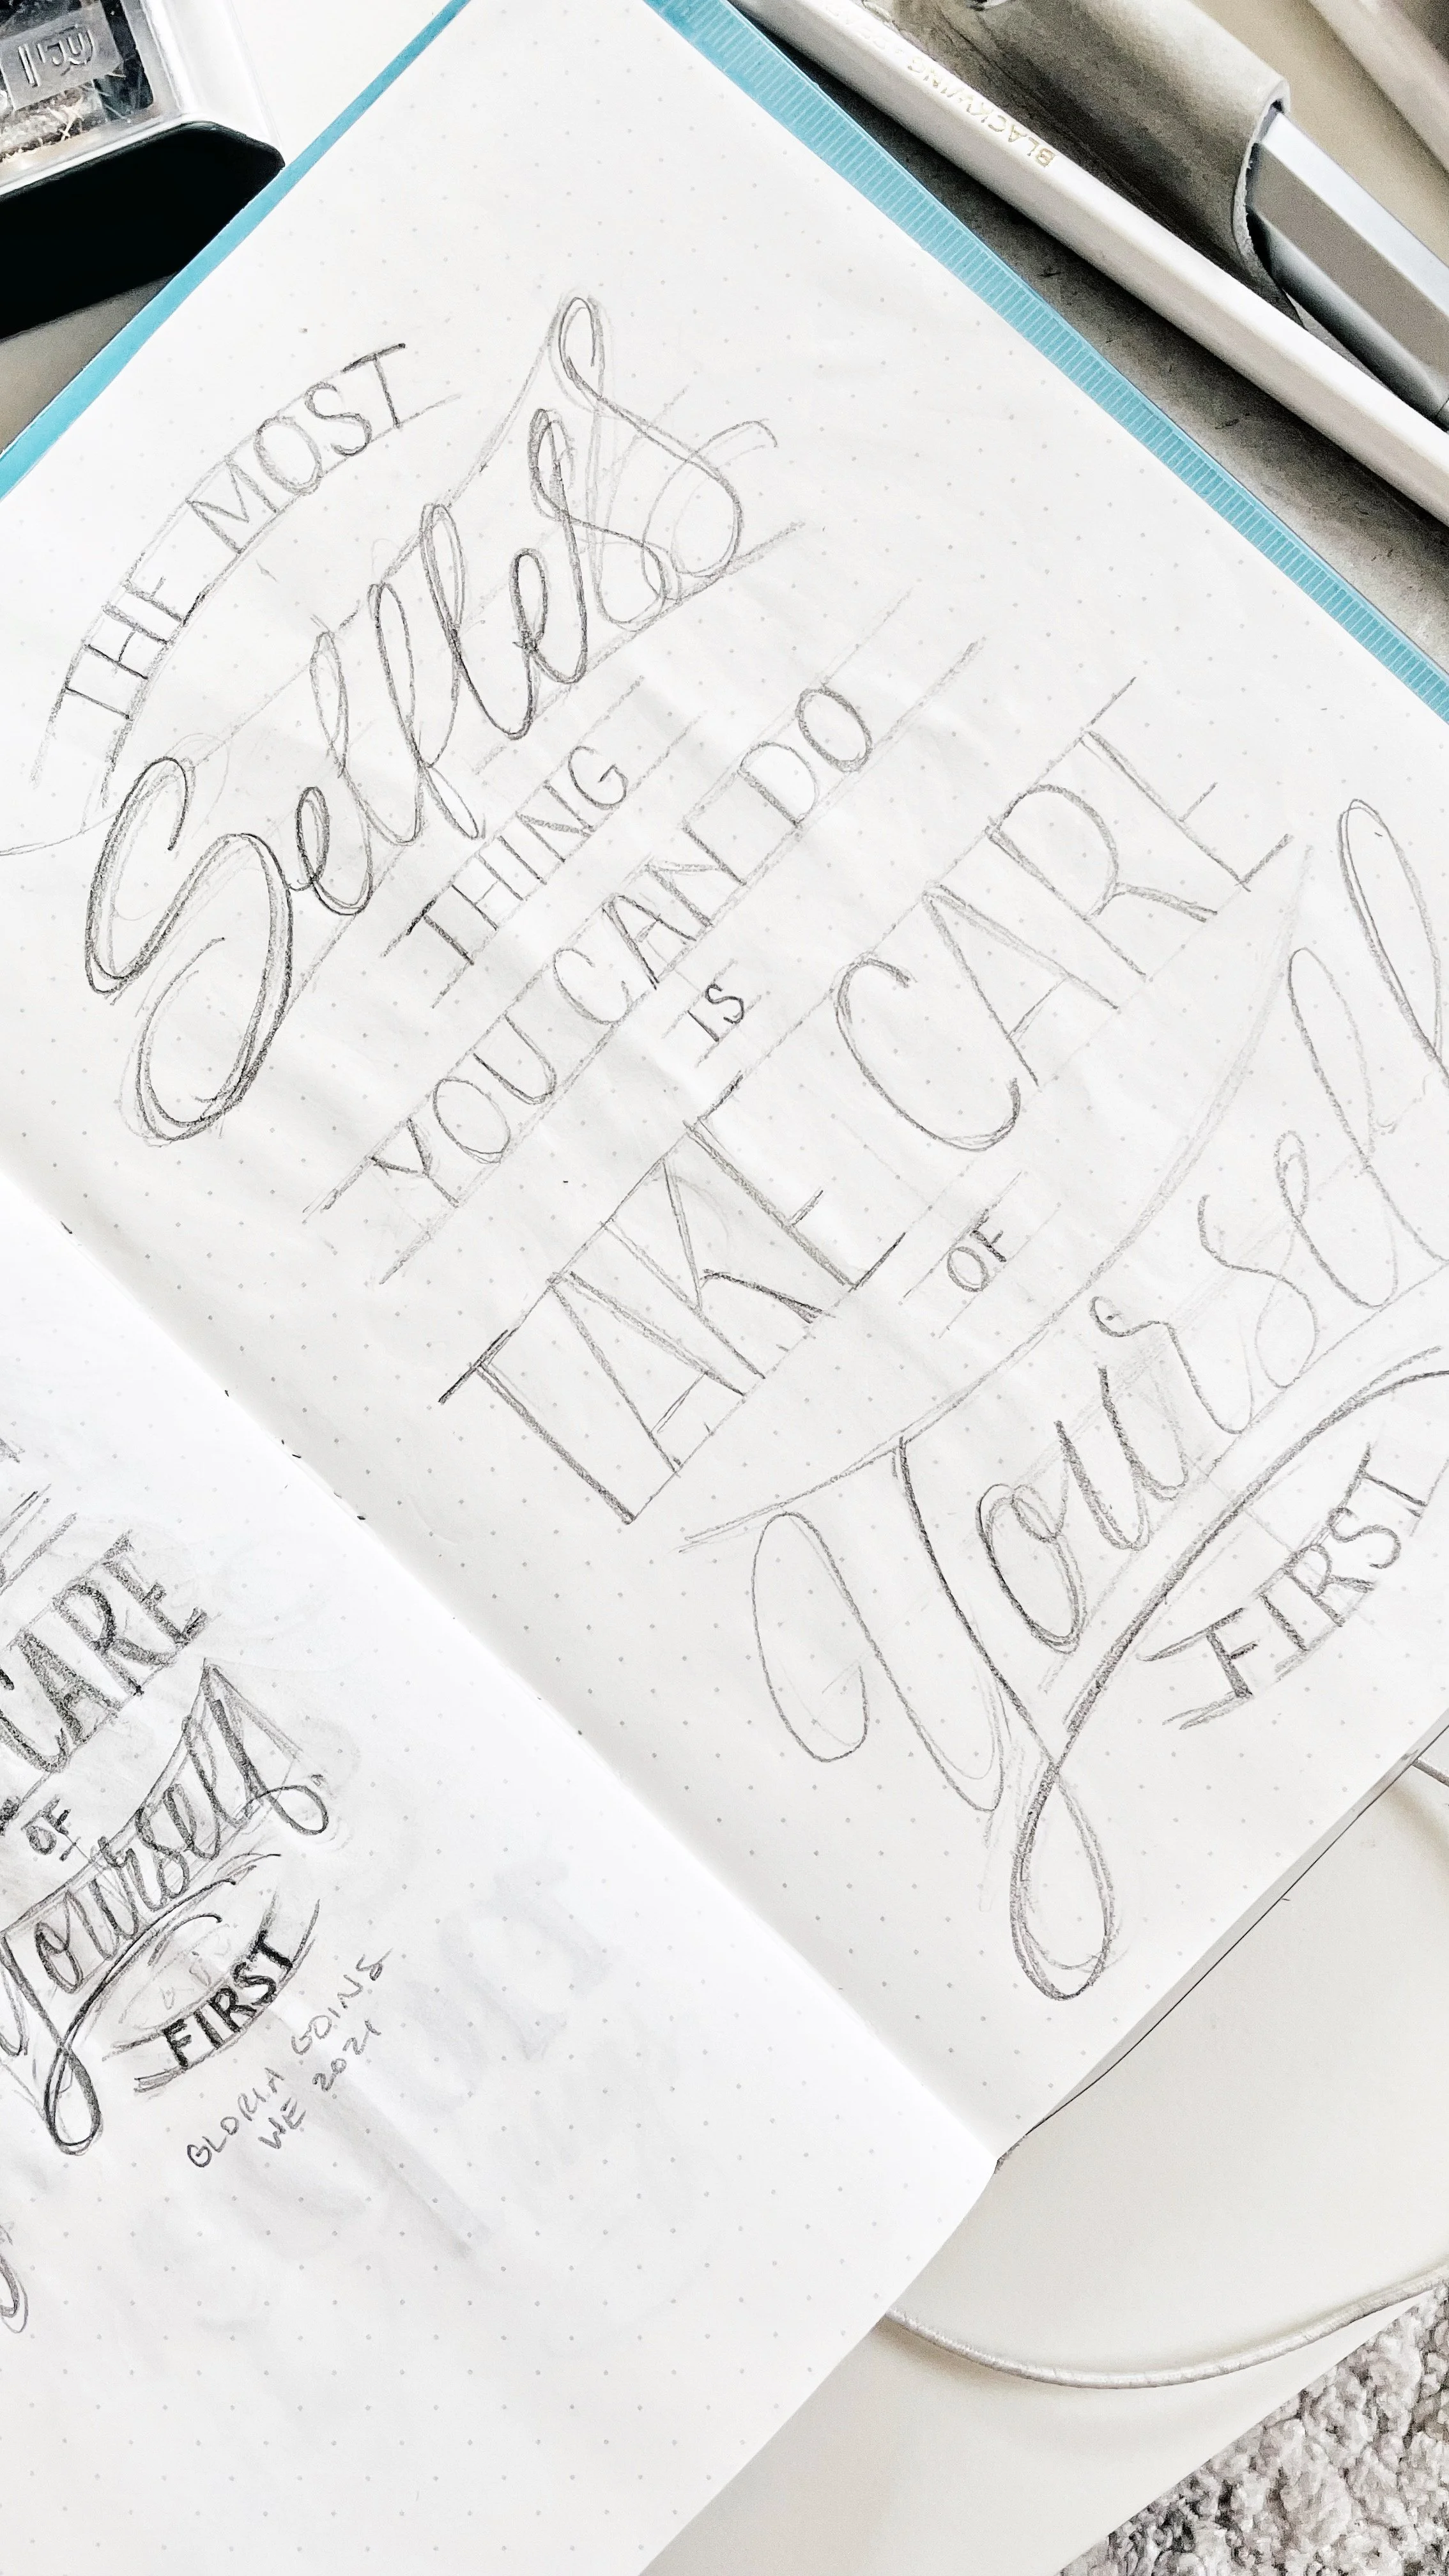 THE MOST
Selfless
THING
YOU CAN DO
IS
TAKE CARE
OF
Yourself
FIRST
CARE
OF
yourself
FIRST
GLORIA GOINS
WE 2021
BLACKWING